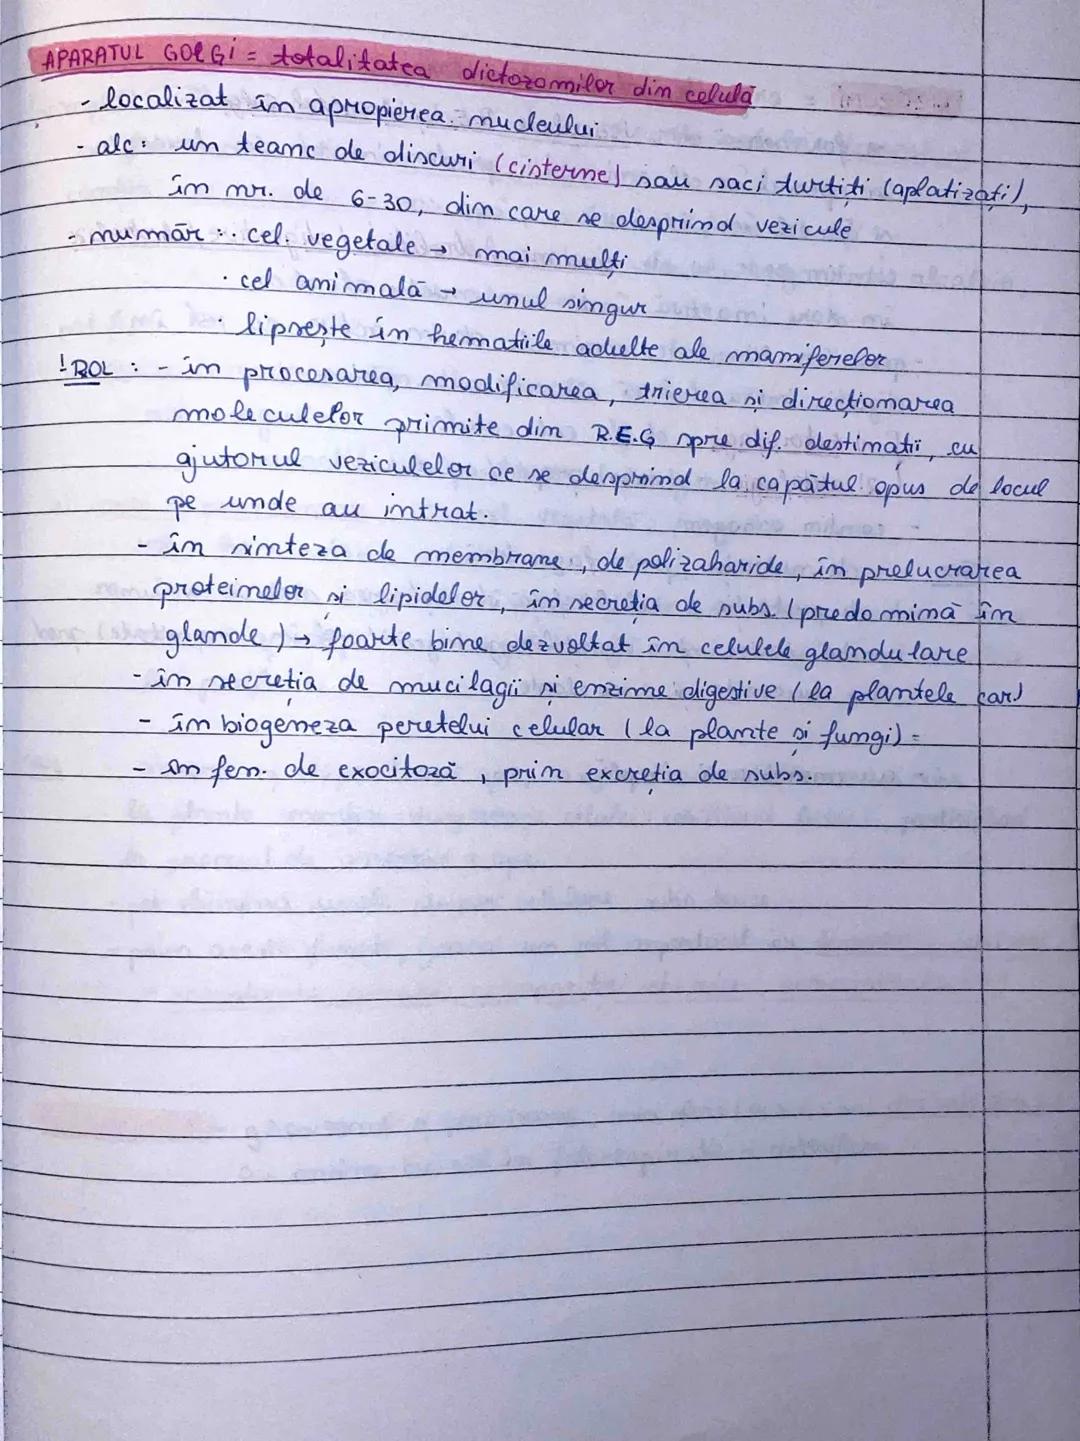 APARATUL GOLGI = totalitatea dictozomilor din celulă
- localizat în apropierea nucleului
- alc: un teanc de discuri (cisterne) sau saci turtiți (aplatizați),
în nr. de 6-30, din care se desprind vezicule
- număr : · cel. vegetale → mai mulți
· cel animală → unul singur
· lipsește în hematiile adulte ale mamiferelor
! ROL : - în procesarea, modificarea, trierea și direcționarea
moleculelor primite din R.E.G spre dif. destinații, cu
ajutorul veziculelor ce se desprind la capătul opus de locul
pe unde au intrat.
- în sinteza de membrane, de polizaharide, în prelucrarea
proteinelor și lipidelor, în secreția de subs. (predomină în
glande) → foarte bine dezvoltat în celulele glandulare
- în secreția de mucilagii și enzime digestive (la plantele car)
- în biogeneza peretelui celular (la plante și fungi) =
- în fen. de exocitoză, prin excreția de subs.